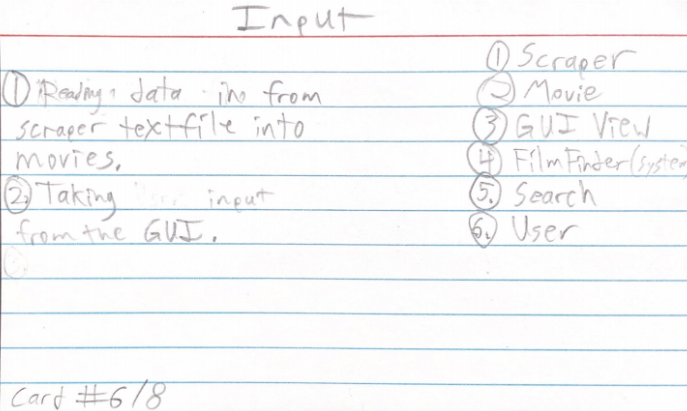 Input
① Reading data in from
scraper textfile into
movies.
②. Taking User input
from the GUI.
① Scraper
② Movie
③ GUI View
④ FilmFinder (system
⑤. Search
⑥. User
Card #6/8